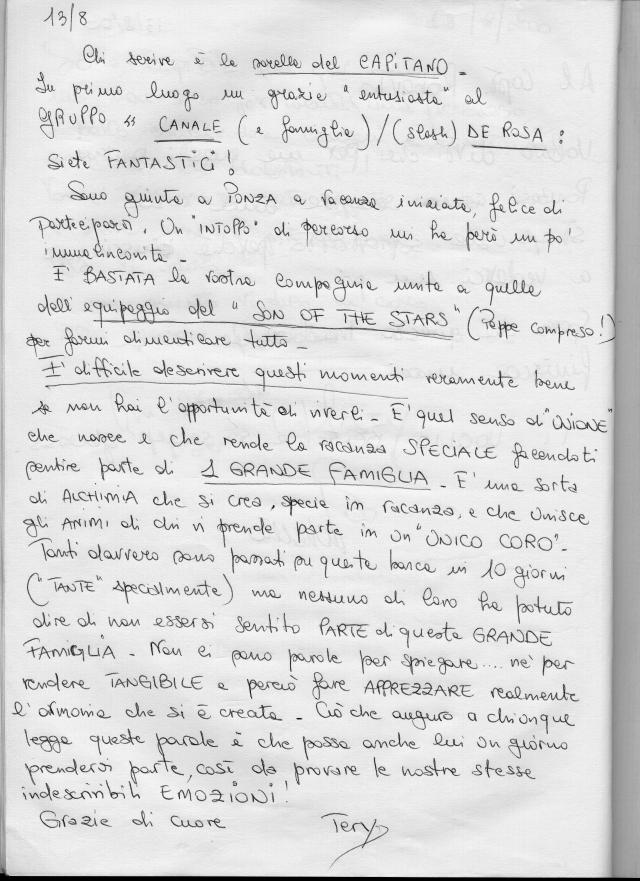 13/8
Chi scrive è la sorella del CAPITANO -
In primo luogo un grazie "entusiasta" al
GRUPPO " CANALE (e famiglia)/(slash) DE ROSA:
Siete FANTASTICI!
Sono giunta a PONZA a vacanza iniziata, felice di
parteciparvi. Un "INTOPPO" di percorso mi ha però un po'
immalinconita -
E' BASTATA la vostra compagnia unita a quella
dell'equipaggio del "SON OF THE STARS" (Peppe compreso!)
per farmi dimenticare tutto -
E' difficile descrivere questi momenti veramente bene
se non hai l'opportunità di viverli - E' quel senso di "UNIONE"
che nasce e che rende la vacanza SPECIALE facendoti
sentire parte di 1 GRANDE FAMIGLIA - E' una sorta
di ALCHIMIA che si crea, specie in vacanza, e che unisce
gli ANIMI di chi vi prende parte in un "UNICO CORO" -
Tanti davvero sono passati su questa barca in 10 giorni
("TANTE" specialmente) ma nessuno di loro ha potuto
dire di non essersi sentito PARTE di questa GRANDE
FAMIGLIA - Non ci sono parole per spiegare.... né per
rendere TANGIBILE e perciò fare APPREZZARE realmente
l'armonia che si è creata - Ciò che auguro a chiunque
legga queste parole è che possa anche lui un giorno
prendervi parte, così da provare le nostre stesse
indescrivibili EMOZIONI!
Grazie di cuore Tery